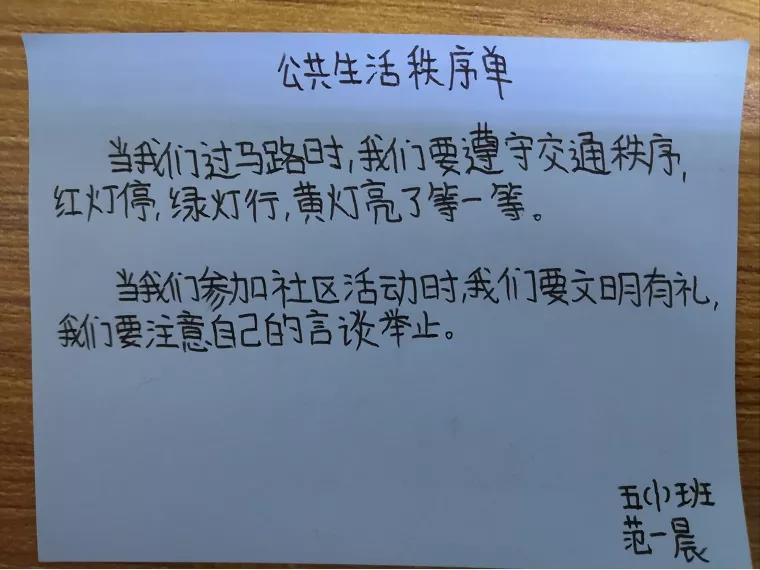 公共生活秩序单
当我们过马路时,我们要遵守交通秩序,
红灯停,绿灯行,黄灯亮了等一等。
当我们参加社区活动时,我们要文明有礼,
我们要注意自己的言谈举止。
五(1)班
范一晨